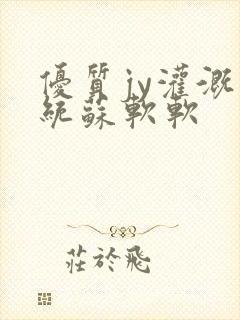 優質jy灌溉
統蘇軟軟
莊於飛